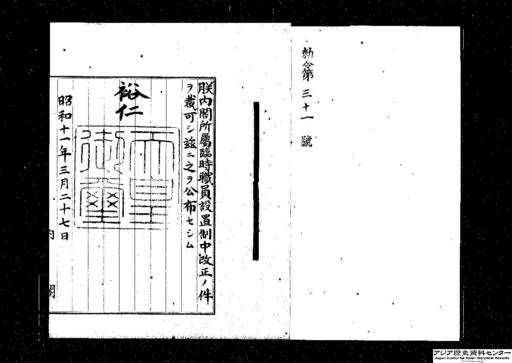 勅令第三十一號
朕内閣所屬臨時職員設置制中改正ノ件
ヲ裁可シ玆ニ之ヲ公布セシム
裕仁
天皇御璽
昭和十一年三月二十七日
内閣
アジア歴史資料センター
Japan Center for Asian Historical Records